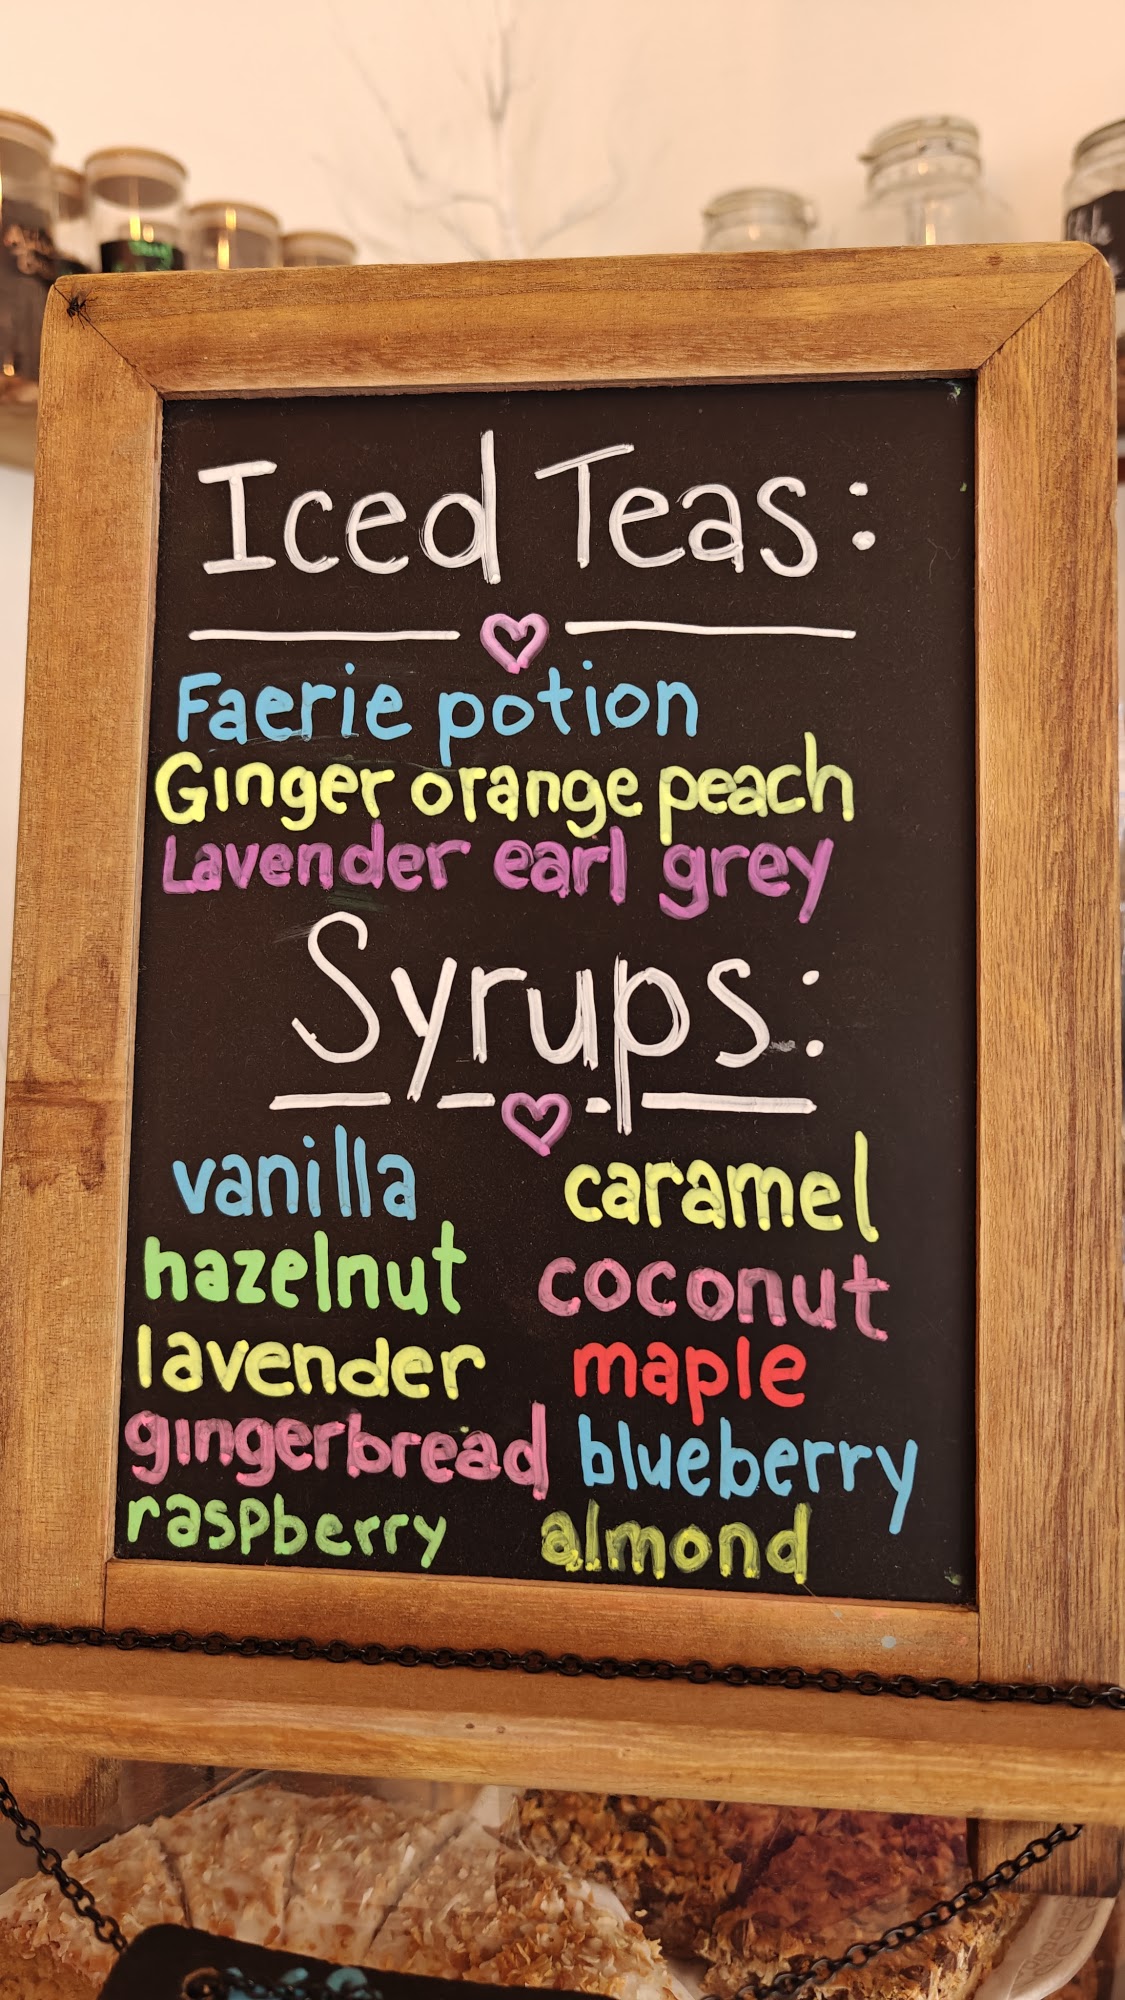 Iced Teas:
Faerie potion
Ginger orange peach
Lavender earl grey
Syrups:
vanilla caramel
hazelnut coconut
lavender maple
gingerbread blueberry
raspberry almond